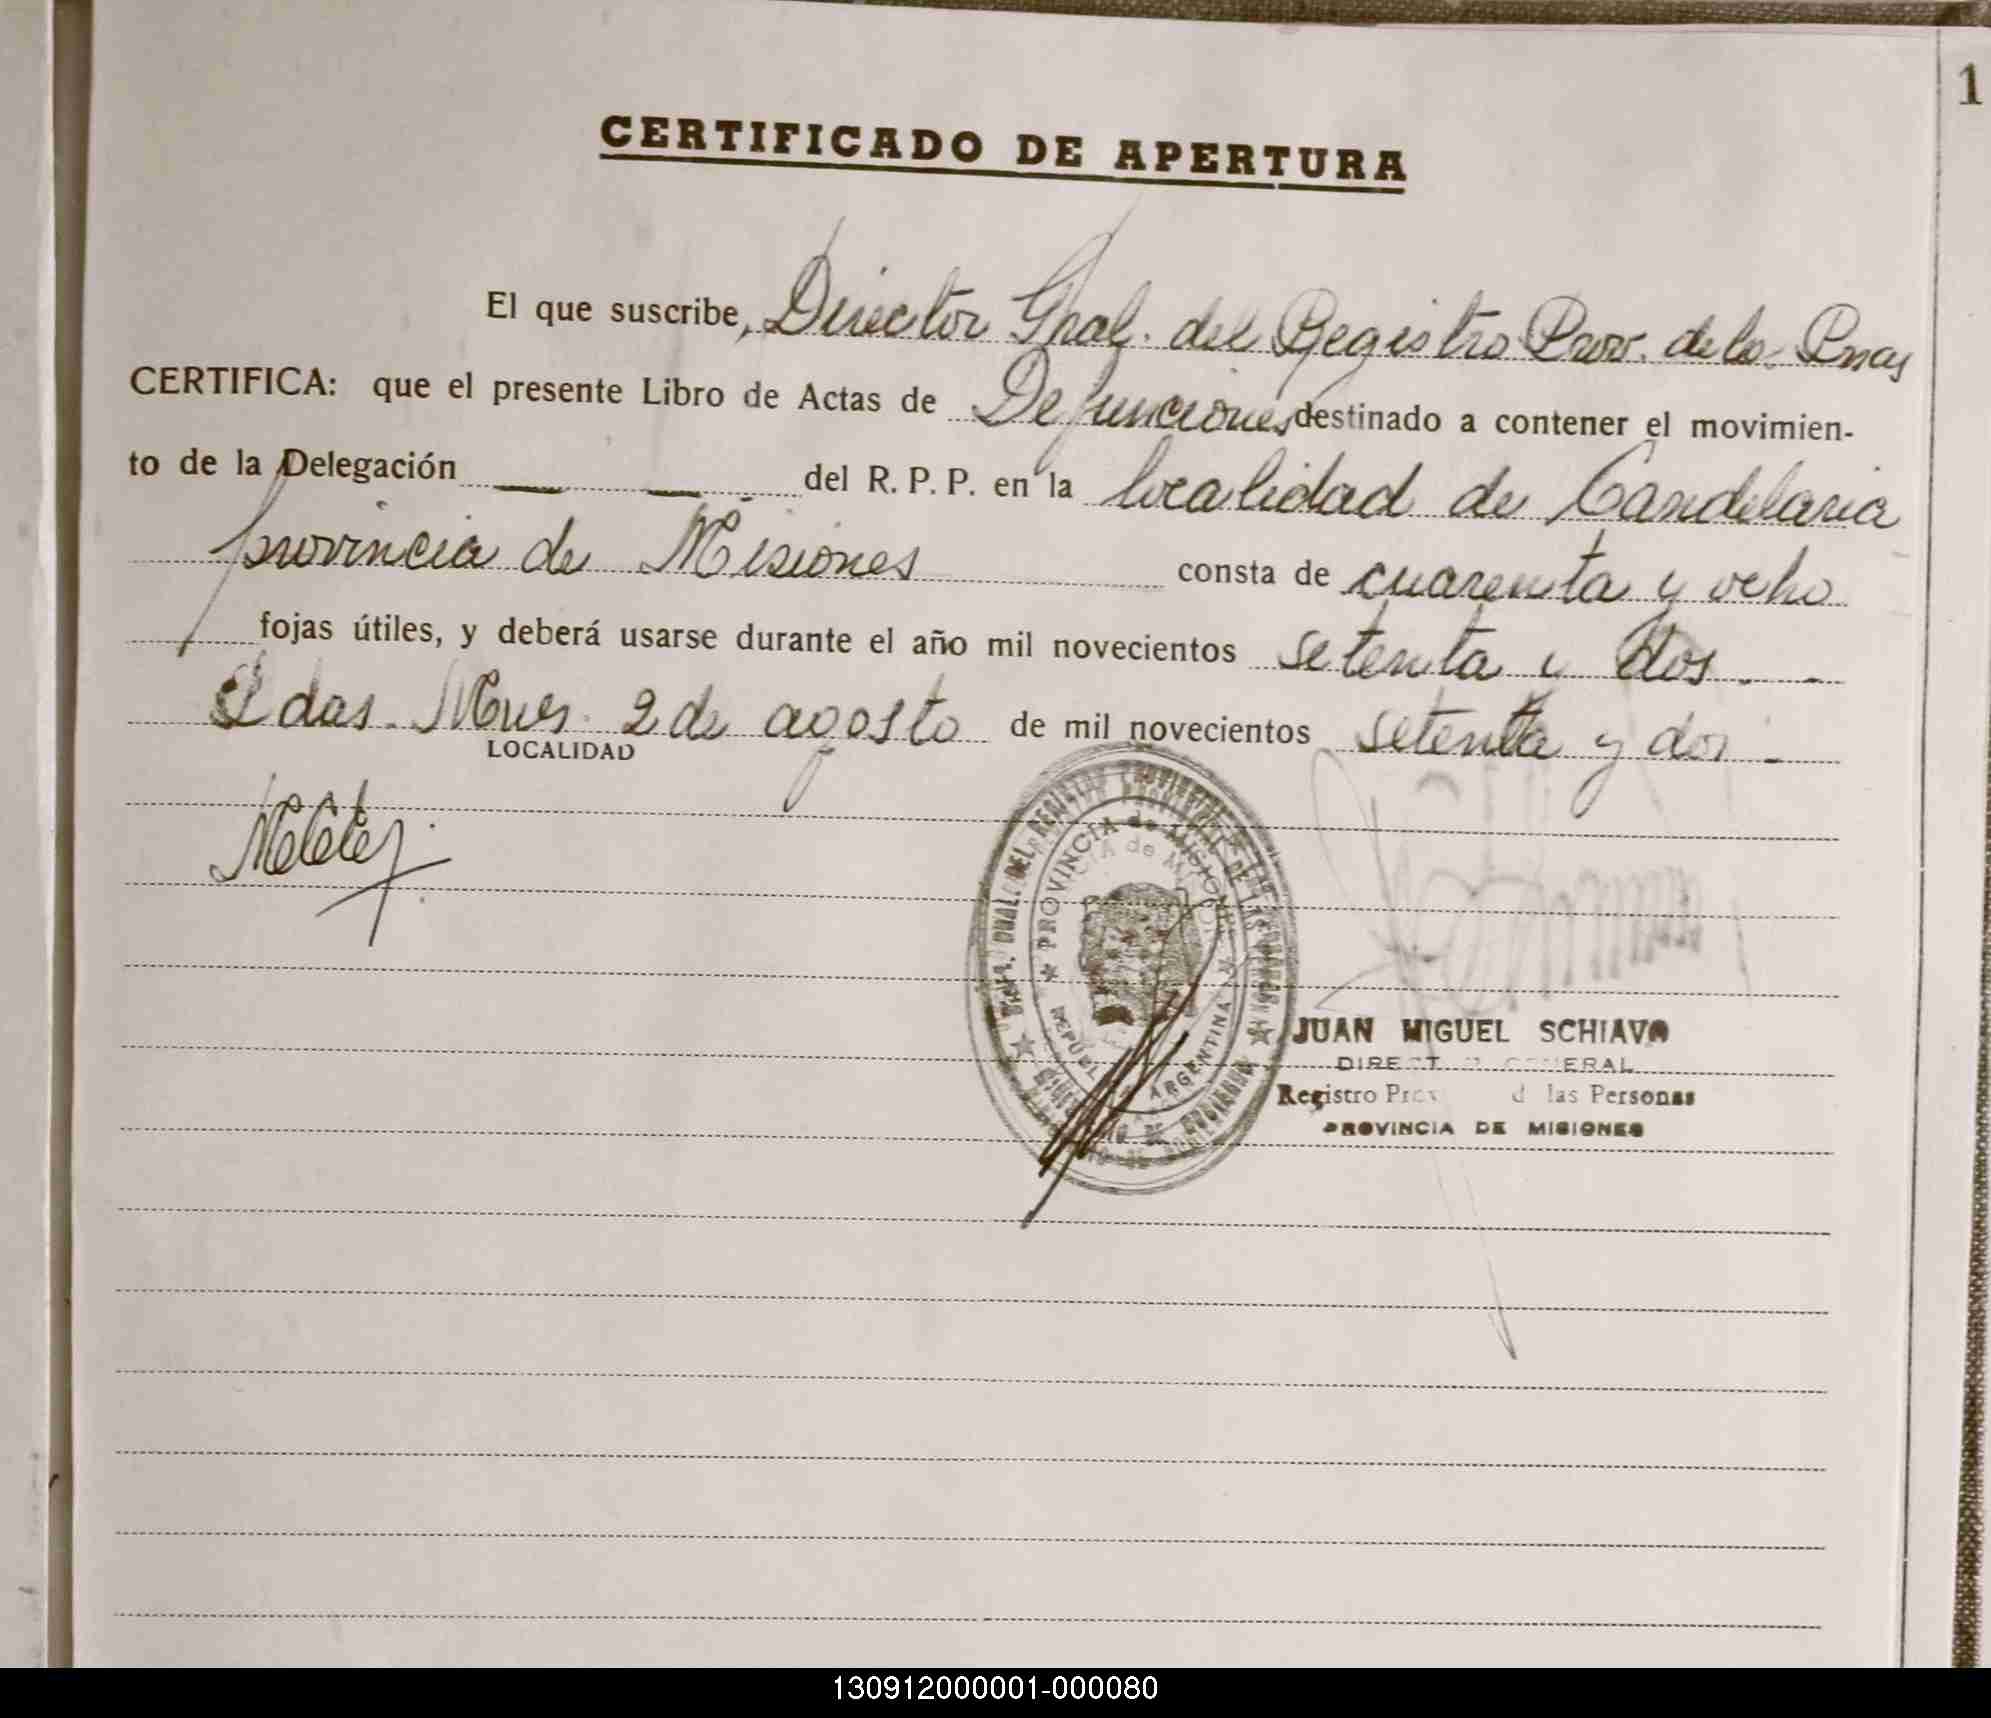 1
CERTIFICADO DE APERTURA
El que suscribe, Director Gral. del Registro Prov. de las Pnas
CERTIFICA: que el presente Libro de Actas de Defunciones destinado a contener el movimien-
to de la Delegación — — . del R. P. P. en la localidad de Candelaria
provincia de Misiones consta de cuarenta y ocho
fojas útiles, y deberá usarse durante el año mil novecientos setenta y dos . -
Pdas. Mnes. 2 de agosto de mil novecientos setenta y dos . -
LOCALIDAD
PROVINCIA de MISIONES
ARGENTINA
JUAN MIGUEL SCHIAVO
DIRECT GENERAL
Registro Prov d las Personas
PROVINCIA DE MISIONES
130912000001-000080